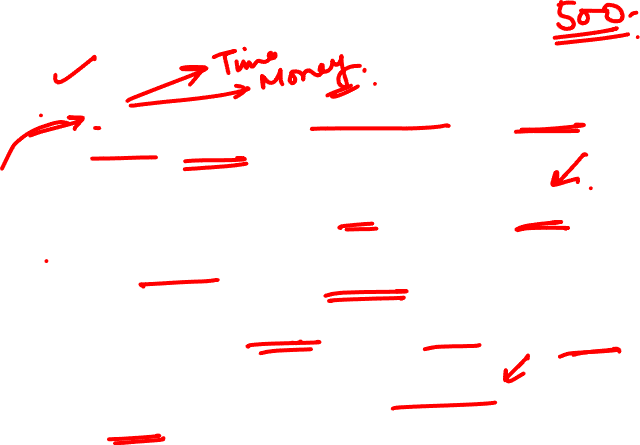 500.
Time
Money.